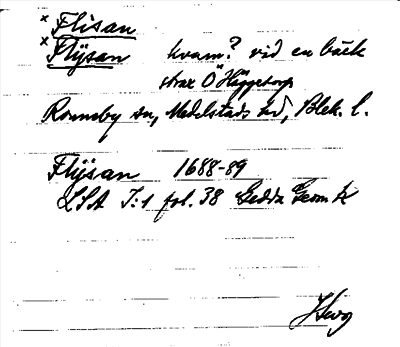 × Flisan
× Flÿsan kvarn? vid en bäck
strax Ö Häggetorp
Ronneby sn, Medelstads hd, Blek. l.
Flÿsan 1688-89
LSA I:1 fol. 38 Gedda Geom k